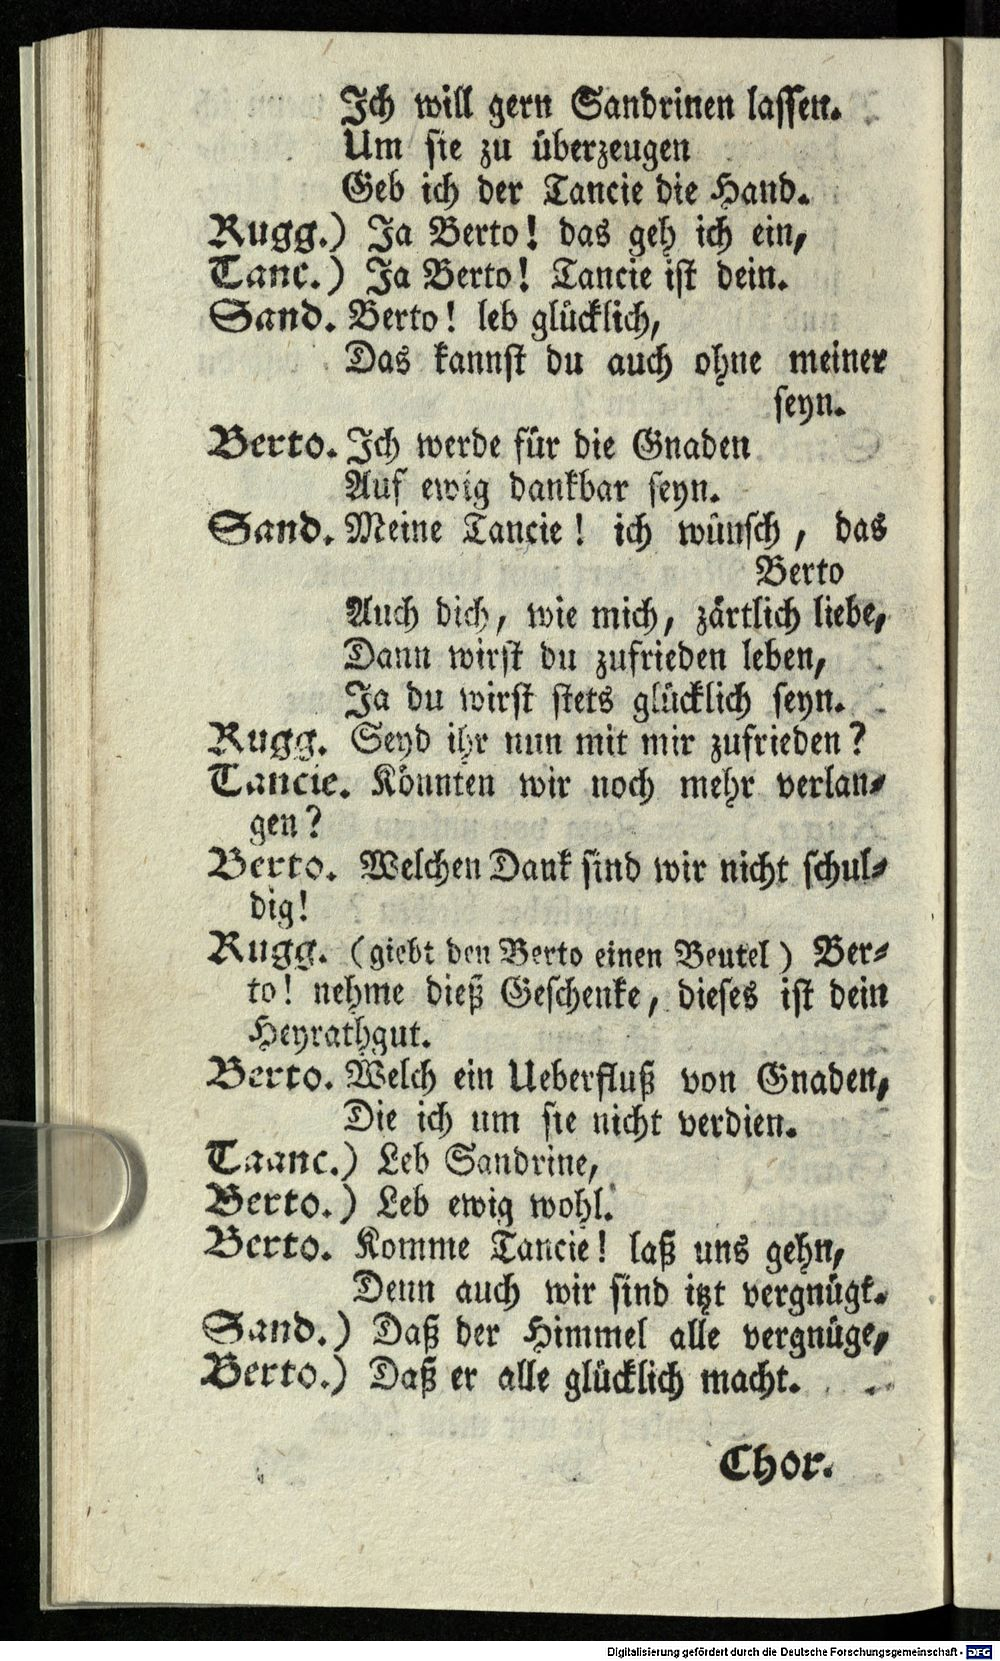 Ich will gern Sandrinen lassen.
Um sie zu überzeugen
Geb ich der Tancie die Hand.
Rugg.) Ja Berto! das geh ich ein,
Tanc.) Ja Berto! Tancie ist dein.
Sand. Berto! leb glücklich,
Das kannst du auch ohne meiner
seyn.
Berto. Ich werde für die Gnaden
Auf ewig dankbar seyn.
Sand. Meine Tancie! ich wünsch, das
Berto
Auch dich, wie mich, zärtlich liebe,
Dann wirst du zufrieden leben,
Ja du wirst stets glücklich seyn.
Rugg. Seyd ihr nun mit mir zufrieden?
Tancie. Könnten wir noch mehr verlan-
gen?
Berto. Welchen Dank sind wir nicht schul-
dig!
Rugg. (giebt den Berto einen Beutel) Ber-
to! nehme dieß Geschenke, dieses ist dein
Heyrathgut.
Berto. Welch ein Ueberfluß von Gnaden,
Die ich um sie nicht verdien.
Taanc.) Leb Sandrine,
Berto.) Leb ewig wohl.
Berto. Komme Tancie! laß uns gehn,
Denn auch wir sind itzt vergnügt.
Sand.) Daß der Himmel alle vergnüge,
Berto.) Daß er alle glücklich macht.
Chor.
Digitalisierung gefördert durch die Deutsche Forschungsgemeinschaft - DFG